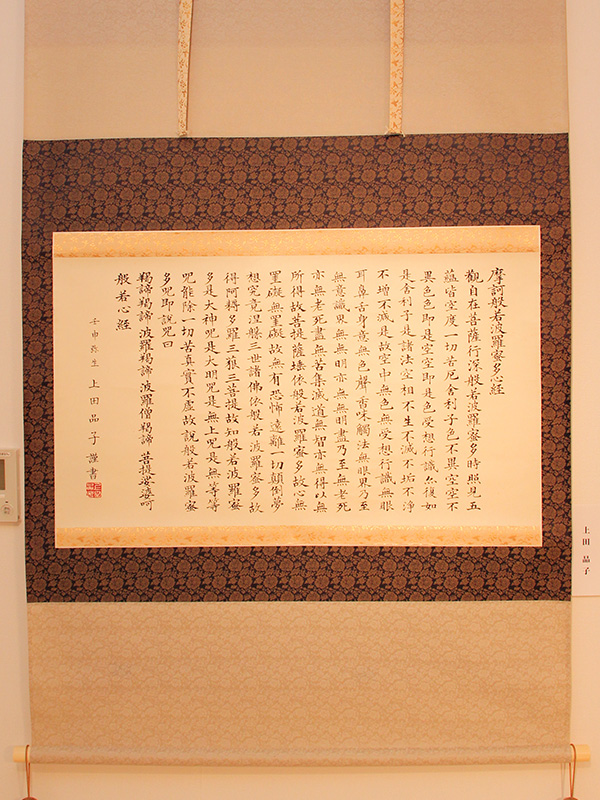 摩訶般若波羅蜜多心經
觀自在菩薩行深般若波羅蜜多時照見五
蘊皆空度一切苦厄舍利子色不異空空不
異色色即是空空即是色受想行識亦復如
是舍利子是諸法空相不生不滅不垢不淨
不增不減是故空中無色無受想行識無眼
耳鼻舌身意無色聲香味觸法無眼界乃至
無意識界無無明亦無無明盡乃至無老死
亦無老死盡無苦集滅道無智亦無得以無
所得故菩提薩埵依般若波羅蜜多故心無
罣礙無罣礙故無有恐怖遠離一切顛倒夢
想究竟涅槃三世諸佛依般若波羅蜜多故
得阿耨多羅三藐三菩提故知般若波羅蜜
多是大神呪是大明呪是無上呪是無等等
呪能除一切苦真實不虛故說般若波羅蜜
多呪即說呪曰
羯諦羯諦 波羅羯諦 波羅僧羯諦 菩提娑婆呵
般若心經
壬申弥生 上田晶子 謹書
上田 晶子